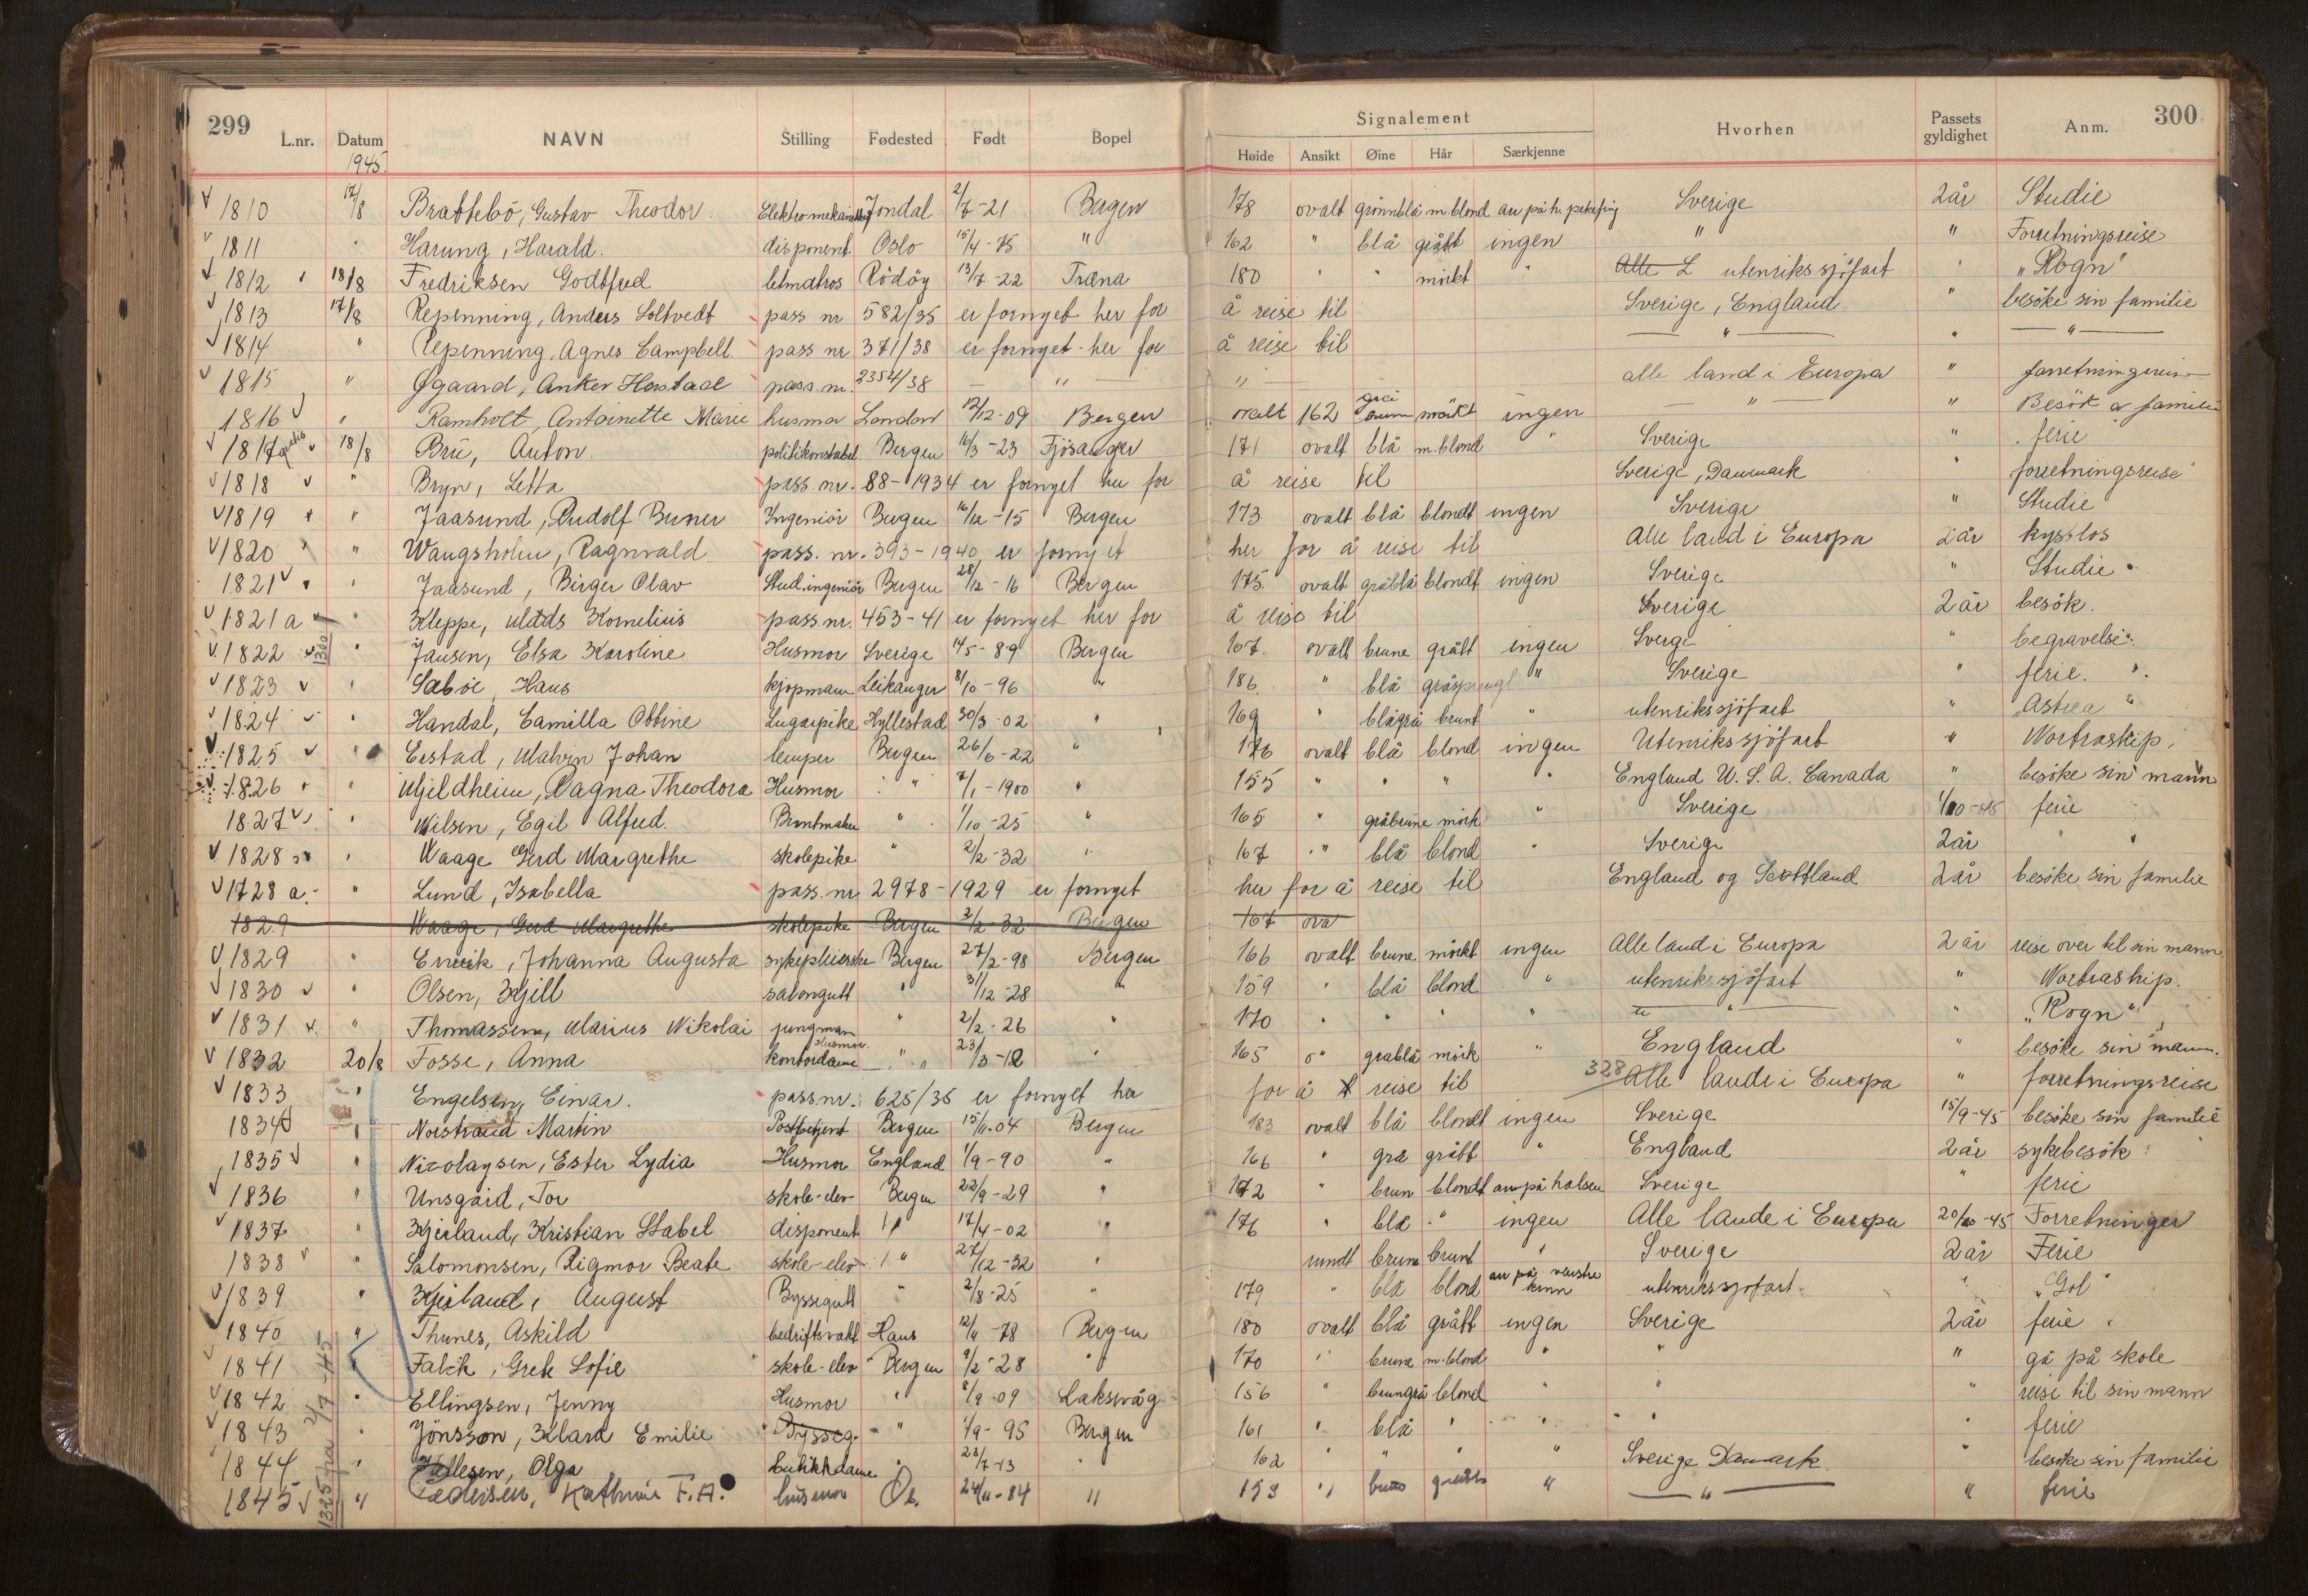 299
300
L.nr. Datum NAVN Stilling Fødested Født Bopel Signalement Hvorhen Passets gyldighet Anm.
Høide Ansikt Øine Hår Særkjenne
1945
1810 17/8 Brattebö, Gustav Theodor Jondal 2/7-21 Bergen 178 ovalt grönnblå m blond arr på h. Sverige 2 år Studie
1811 " Harung, Harald. disponent Oslo 15/4-75 " 162 " blå grått ingen " " Forretningsreise
1812 18/8 Fredriksen Godtfred Rödöy 13/7-22 Træna 180 " " mörkt " Alle L utenrikssjöfart " "Rogn"
1813 17/8 Repenning, Anders Soltvedt pass nr 582/35 er fornyet her for å reise til Sverige, England " besöke sin familie
1814 " Repenning, Agnes Campbell. pass nr 371/38 er fornyet her for å reise til — " — " — " —
1815 " Øgaard, Anker pass. nr. 2354/38 — " — " — alle land i Europa "
1816 " Ramholt, Antoinette Marie husmor London 12/12-09 Bergen ovalt 162 mörkt ingen — " — " Besök familie
1817 18/8 Brü, Anton politikonstabel Bergen 16/3-23 Fjösanger 171 ovalt blå m.blond " Sverige " ferie
1818 " Bryn, Letta pass. nr. 88-1934 er fornyet her for å reise til Sverige, Danmark " forretningsreise
1819 " Jaasund, Rudolf Ingeniör Bergen 16/12-15 Bergen 173 ovalt blå blondt ingen Sverige " Studie
1820 " Wangsholm, Ragnvald pass. nr. 393-1940 er fornyet her for å reise til Alle land i Europa 2 år
1821 " Jaasund, Birger Olav Stud.ingeniör Bergen 28/12-16 Bergen 175. ovalt gråblå blondt ingen Sverige " Studie
1821 a " Kleppe, Mads Kornelius pass.nr. 453-41 er fornyet her for å reise til Sverige 2 år besök.
1822 " Jansen, Elsa Karoline Husmor Sverige 14/5-89 Bergen 167. ovalt brune grått ingen Sverge " begravelse.
1823 " Sæböe, Hans kjöpmann Leikanger 8/10-96 " 186 " blå gråsprengt " Sverige " ferie.
1824 " Handal, Camilla Obbine Lugarpike Hyllestad 30/3-02 " 169 " blågrå brunt " utenrikssjöfart " "Astrea"
1825 " Eestad, Malvin Johan lemper Bergen 26/6-22 " 176 ovalt blå blond ingen Utenrikssjöfart " Nortraship.
1826 " Mjeldheim, Ragna Theodora Husmor " 7/1-1900 " 155 " " " " England U.S.A. Canada " besöke sin mann
1827 " Nilsen, Egil Alfred. " 1/10-25 " 165 " gråbrune mörk " Sverige 1/10-45 ferie
1828 " Waage Gerd Margrethe skolepike " 2/2-32 " 167 " blå blond " Sverige 2 år "
1728 a. " Lund, Isabella pass. nr 2978-1929 er fornyet her for å reise til England og Scottland 2 år besöke sin familie
1829 Waage, Gerd Margrethe skolepike Bergen 2/2-32 Bergen 167 ova
1829 " Johanna Augusta sykepleierske Bergen 27/2-98 Bergen 166 ovalt brune mörkt ingen Alle land i Europa 2 år reise over til sin mann
1830 " Olsen, Kjell salongutt " 3/12-28 " 159 " blå blond " utenrikssjöfart " Nortraship.
1831 " Thomassen, Marius Nikolai jungman " 2/2-26 " 170 " " " " " " "Rogn"
1832 20/8 Fosse, Anna Husmor. kontordame " 23/3-12 " 165 gråblå mörk " England " besöke sin mann.
1833 " Engelsen, Einar. pass.nr. 625/35 er fornyet her for å reise til 328 Alle lande i Europa " forretningsreise
1834 " Norstrand Martin Postbetjent Bergen 15/11-04 Bergen 183 ovalt blå blondt ingen Sverige 15/9-45 besöke sin familie
1835 " Nicolaysen, Ester Lydia Husmor England 1/9-90 " 166 " grå grått " England 2 år sykebesök
1836 " Unsgård, Tor skole-elev Bergen 22/9-29 " 172 " brun blondt arr på halsen Sverige " ferie
1837 " Kjerland, Kristian Stabel disponent " 17/4-02 " 176 " blå " ingen Alle lande i Europa 20/10-45 Forretninger
1838 " Salomonsen, Rigmor Beate skole-elev " 27/12-32 " rundt brune brunt " Sverige 2 år Ferie
1839 " Kjerland, August Byssegutt " 2/8-25 " 179 " blå blond arr på venstre kinn utenrikssjöfart " "Gol"
1840 " Thunes, Askild bedriftsvakt Haus 12/11-78 Bergen 180 ovalt blå grått ingen Sverige 2 år ferie
1841 " Falck, Grete Sofie skole-elev Bergen 9/2-28 " 170 " brune m.blond " " " gå på skole
1842 " Ellingsen, Jenny Husmor " 8/9-09 Laksevåg 156 " brungrå blond " " " reise til sin mann
1843 " Jönsson, Klara Emilie Bysseg. " 1/9-95 Bergen 161 " blå " " " " ferie
1844 " Olga butikkdame " 23/7-13 " 162 " " " " Sverige Danmark " besöke sin familie
1845 " Pedersen, Kathrine F.A. husmor 24/11-84 " 153 " " — " — " ferie
1325 fra 2/7-45